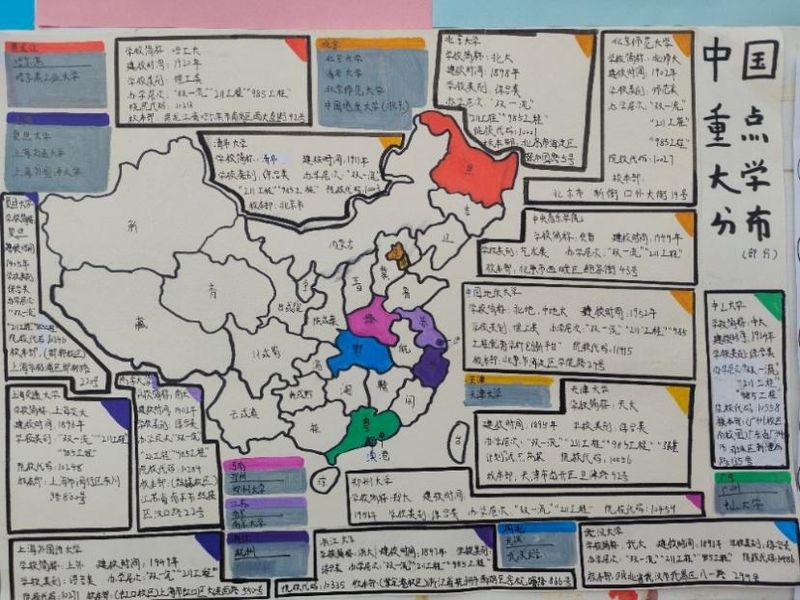 中国重点大学分布
(部分)
黑龙江
哈尔滨
哈尔滨工业大学
学校简称：哈工大
建校时间：1920年
学校类别：理工类
办学层次："双一流""211工程""985工程"
北京
北京大学
清华大学
北京师范大学
中国地质大学(北京)
北京大学
学校简称：北大
建校时间：1898年
学校类别：综合类
办学层次："双一流"
"211工程""985工程"
院校代码：10001
北京师范大学
学校简称：北师大
建校时间：1902年
学校类别：师范类
办学层次："双一流"
"211工程"
"985工程"
院校代码：10027
校本部：
北京市 新街口外大街19号
复旦大学
上海交通大学
上海外国语大学
清华大学
学校简称：清华 建校时间：1911年
学校类别：综合类 办学层次："双一流"
"211工程""985工程" 院校代码：10003
校本部：北京市
中央音乐学院
学校简称：央音 建校时间：1949年
学校类别：艺术类 办学层次："双一流""211工程"
校本部：北京市西城区鲍家街43号
中国地质大学
建校时间：1952年
学校类别：理工类 办学层次："双一流""211工程""985
院校代码：11415
校本部：北京市海淀区学院路29号
中山大学
学校简称：中大
建校时间：1924年
学校类别：综合类
办学层次："双一流"
"211工程"
"985工程"
院校代码：10558
天津
天津大学
天津大学
学校简称：天大
建校时间：1895年 学校类别：综合类
办学层次："双一流""211工程""985工程"
院校代码：10056
校本部：天津市南开区卫津路92号
复旦大学
学校简称
复旦
建校时间
1905年
学校类别
综合类
办学层次
"双一流"
"211工程""985工程"
院校代码：10246
校本部：(邯郸校区)
上海市杨浦区邯郸路
220号
上海交通大学
学校简称：上海交大
建校时间：1896年
学校类别："双一流""211工程"
"985工程"
院校代码：10248
校本部：上海市闵行区东川
路800号
南京大学
学校简称：南大
建校时间：1902年
学校类别：综合类
办学层次："双一流"
"211工程""985工程"
院校代码：10284
校本部：(鼓楼校区)
江苏省南京市鼓楼
区汉口路22号
河南
郑州
郑州大学
江苏
南京
南京大学
浙江
杭州
郑州大学
学校简称：郑大 建校时间：
1956年 学校类别：综合类 办学层次："双一流""211工程" 院校代码：10459
广东
广州
中山大学
上海外国语大学
学校简称：上外 建校时间：1949年
办学层次："双一流""211工程"
院校代码：10271 校本部：(虹口校区)上海市虹口区大连西路550号
浙江大学
学校简称：浙大 建校时间：1897年
综合类 办学层次："双一流""211工程""985工程"
院校代码：10335 校本部：(紫金港校区)浙江省杭州市西湖区余杭塘路866号
湖北
武汉
武汉大学
武汉大学
学校简称：武大 建校时间：1893年 学校类别：综合类
办学层次："双一流""211工程""985工程" 院校代码：10486
校本部：湖北省武汉市武昌区八一路299号
黑
吉
辽
内蒙古
新
藏
青
冀
晋
鲁
豫
苏
皖
鄂
湘
赣
闽
粤
桂
台
琼